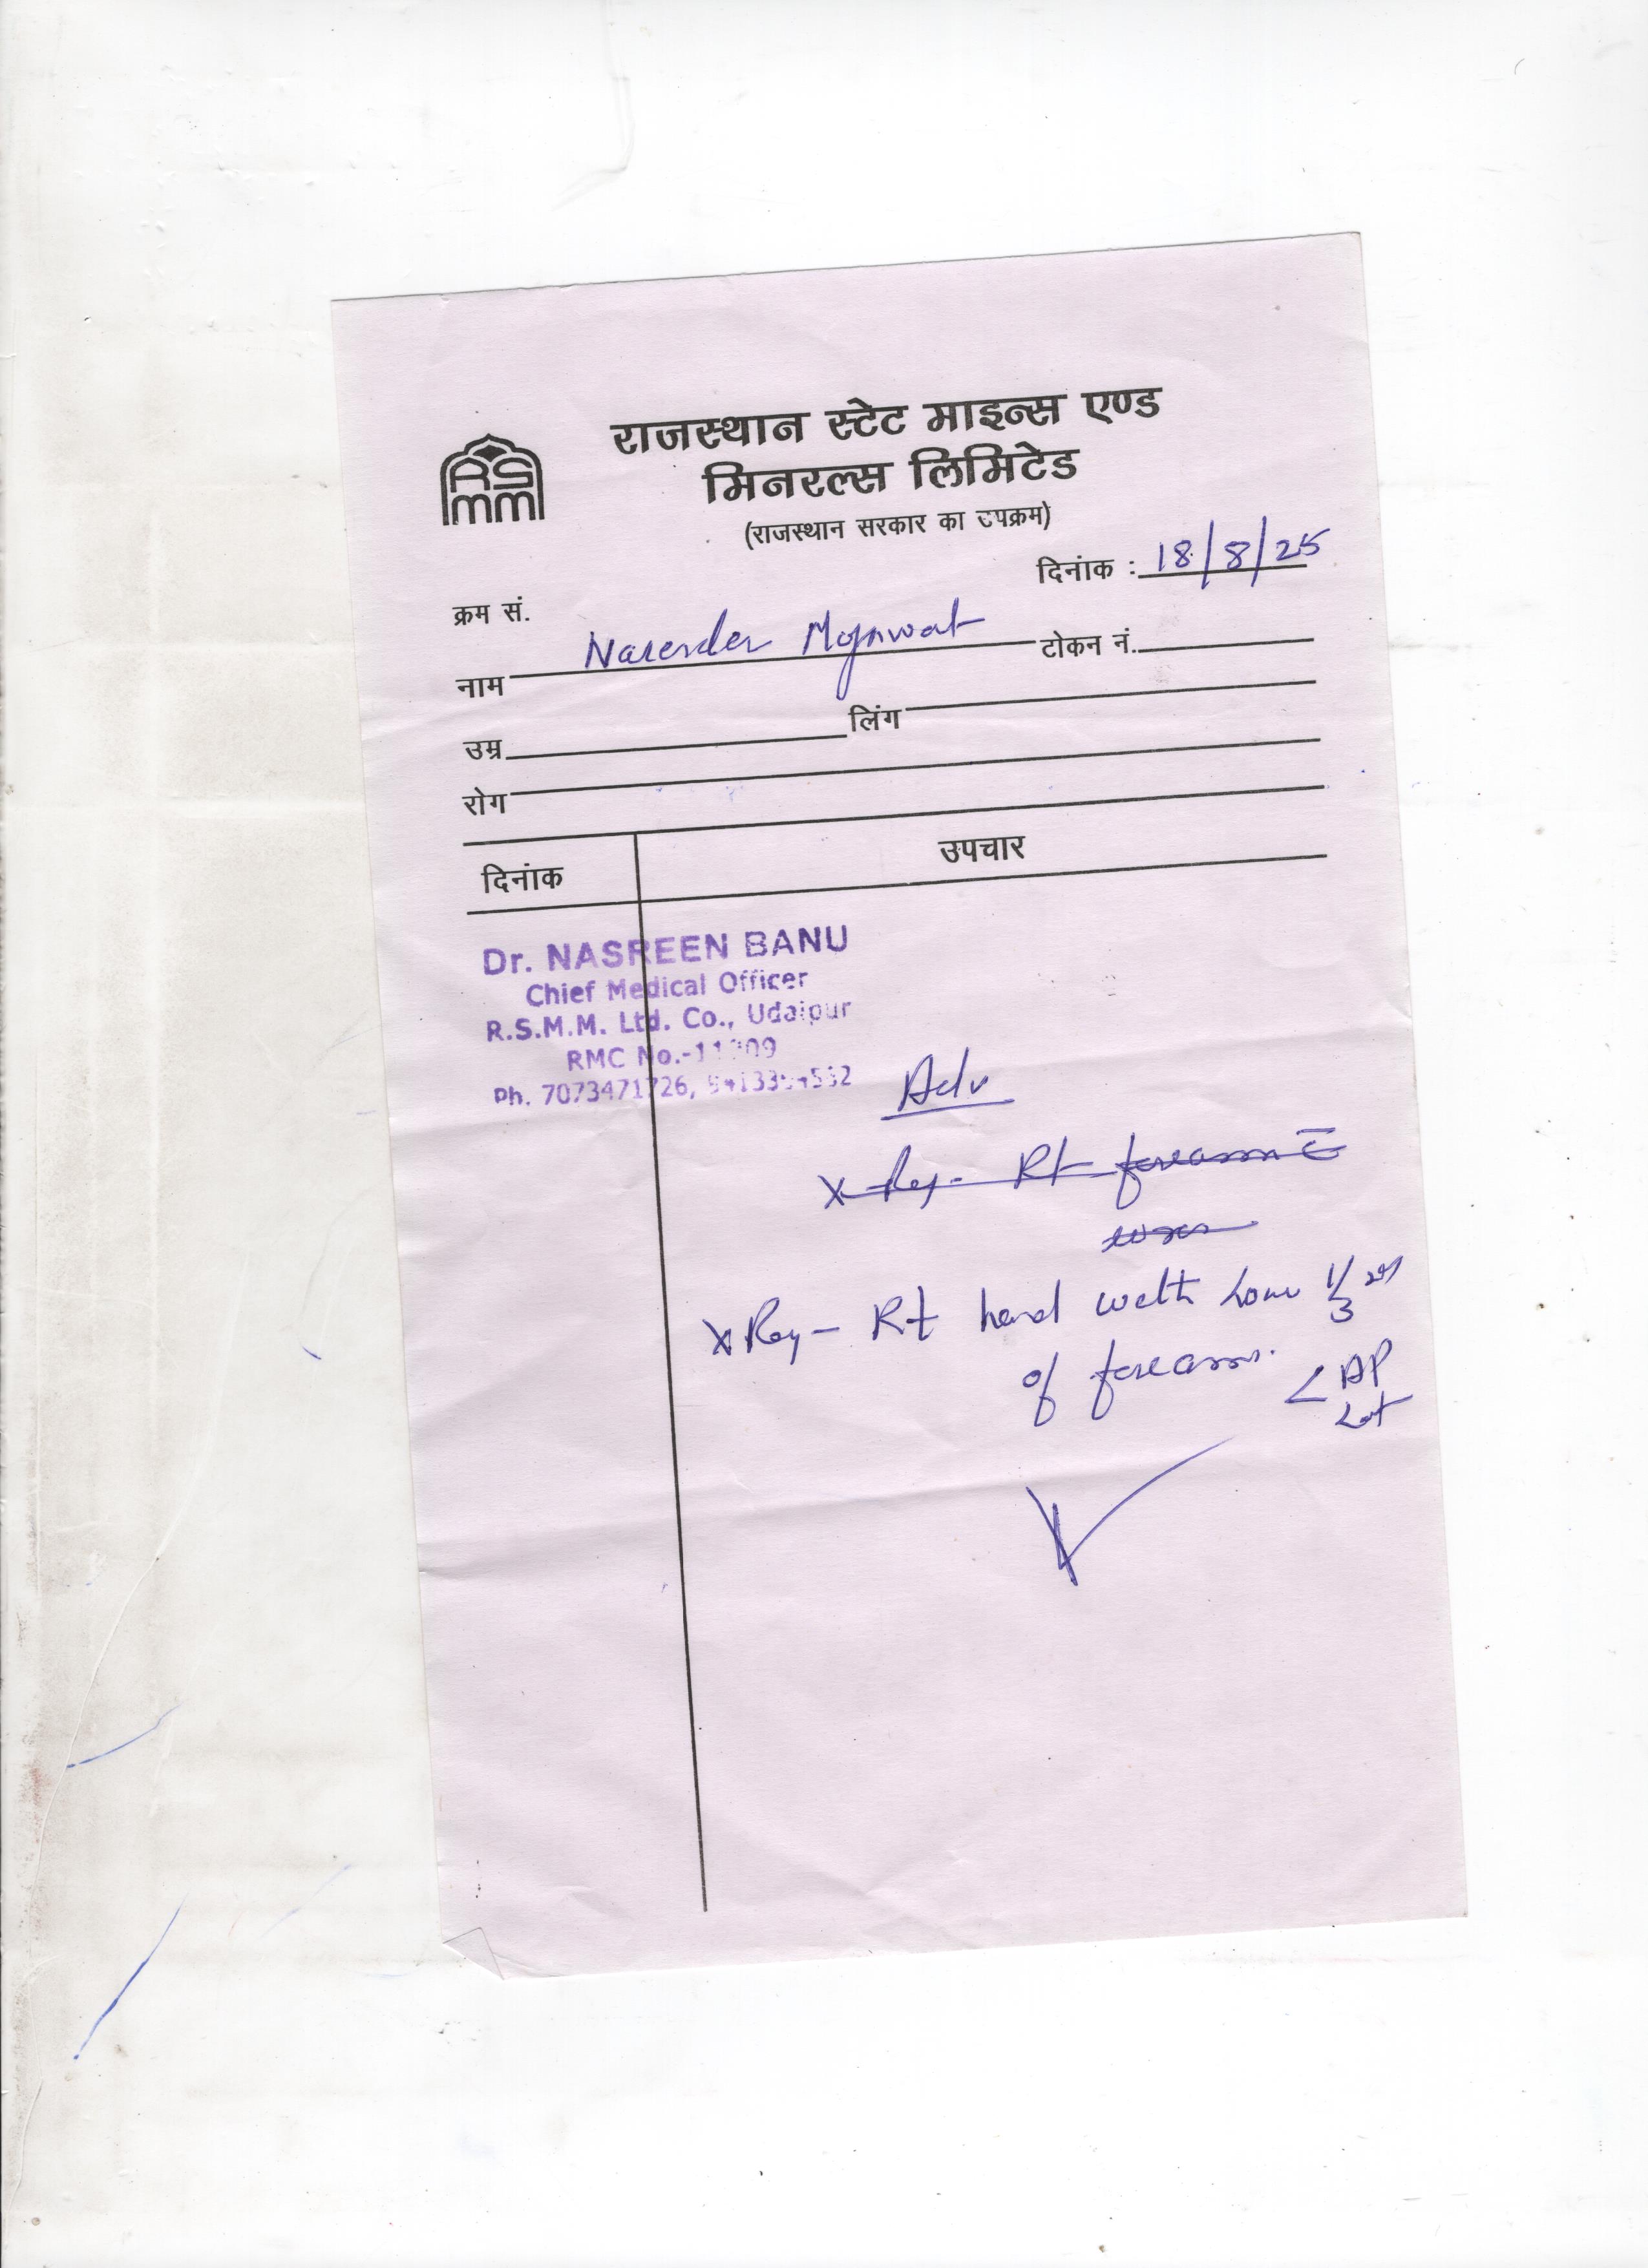 RSMM
राजस्थान स्टेट माइन्स एण्ड
मिनरल्स लिमिटेड
(राजस्थान सरकार का उपक्रम)
दिनांक : 18/8/25
क्रम सं.
नाम Narender टोकन नं.
उम्र लिंग
रोग
दिनांक उपचार
Dr. NASREEN BANU
Chief Medical Officer
R.S.M.M. Ltd. Co., Udaipur
RMC No.-
Ph. 7073471726,
Adv
X-Ray- Rt forearm
X Ray - Rt hand with 1/3
of forearm. < AP
Lat